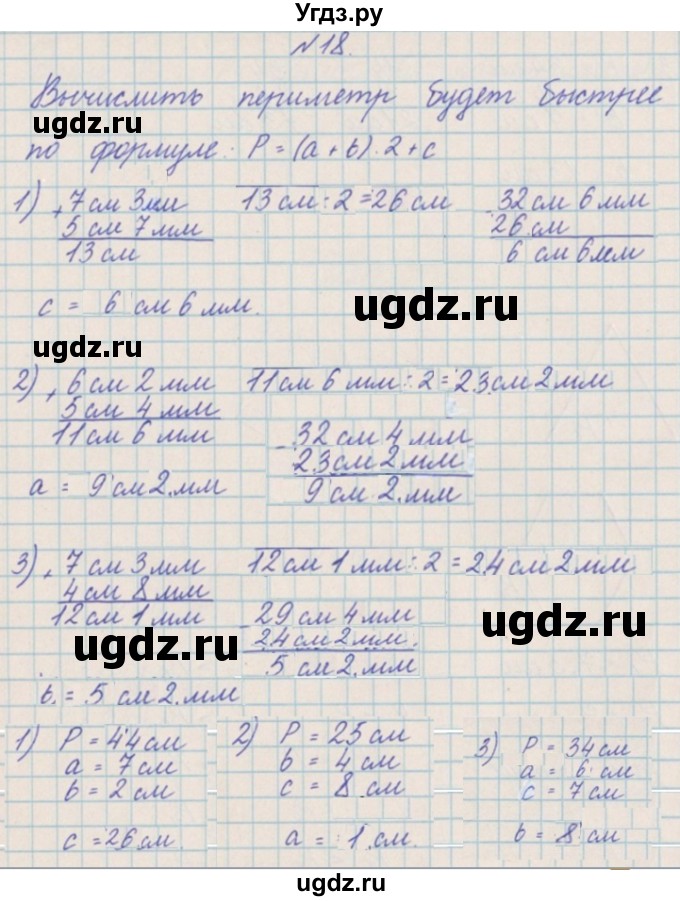 Угдз.ру
№18.
Вычислить периметр будет быстрее
ugdz.ru
по формуле: P = (a + b) · 2 + c
1) + 7 см 3 мм 13 см : 2 = 26 см - 32 см 6 мм
5 см 7 мм 26 см
13 см 6 см 6 мм
c = 6 см 6 мм.
ugdz.ru
ugdz.ru
2) + 6 см 2 мм 11 см 6 мм : 2 = 23 см 2 мм
5 см 4 мм
11 см 6 мм - 32 см 4 мм
23 см 2 мм
a = 9 см 2 мм 9 см 2 мм
3) + 7 см 3 мм 12 см 1 мм : 2 = 24 см 2 мм
4 см 8 мм
12 см 1 мм - 29 см 4 мм
24 см 2 мм
ugdz.ru
ugdz.ru
5 см 2 мм
b = 5 см 2 мм
1) P = 44 см 2) P = 25 см 3) P = 34 см
a = 7 см b = 4 см a = 6 см
b = 2 см c = 8 см c = 7 см
c = 26 см. a = 1 см. b = 8 см
ugdz.ru
ugdz.ru